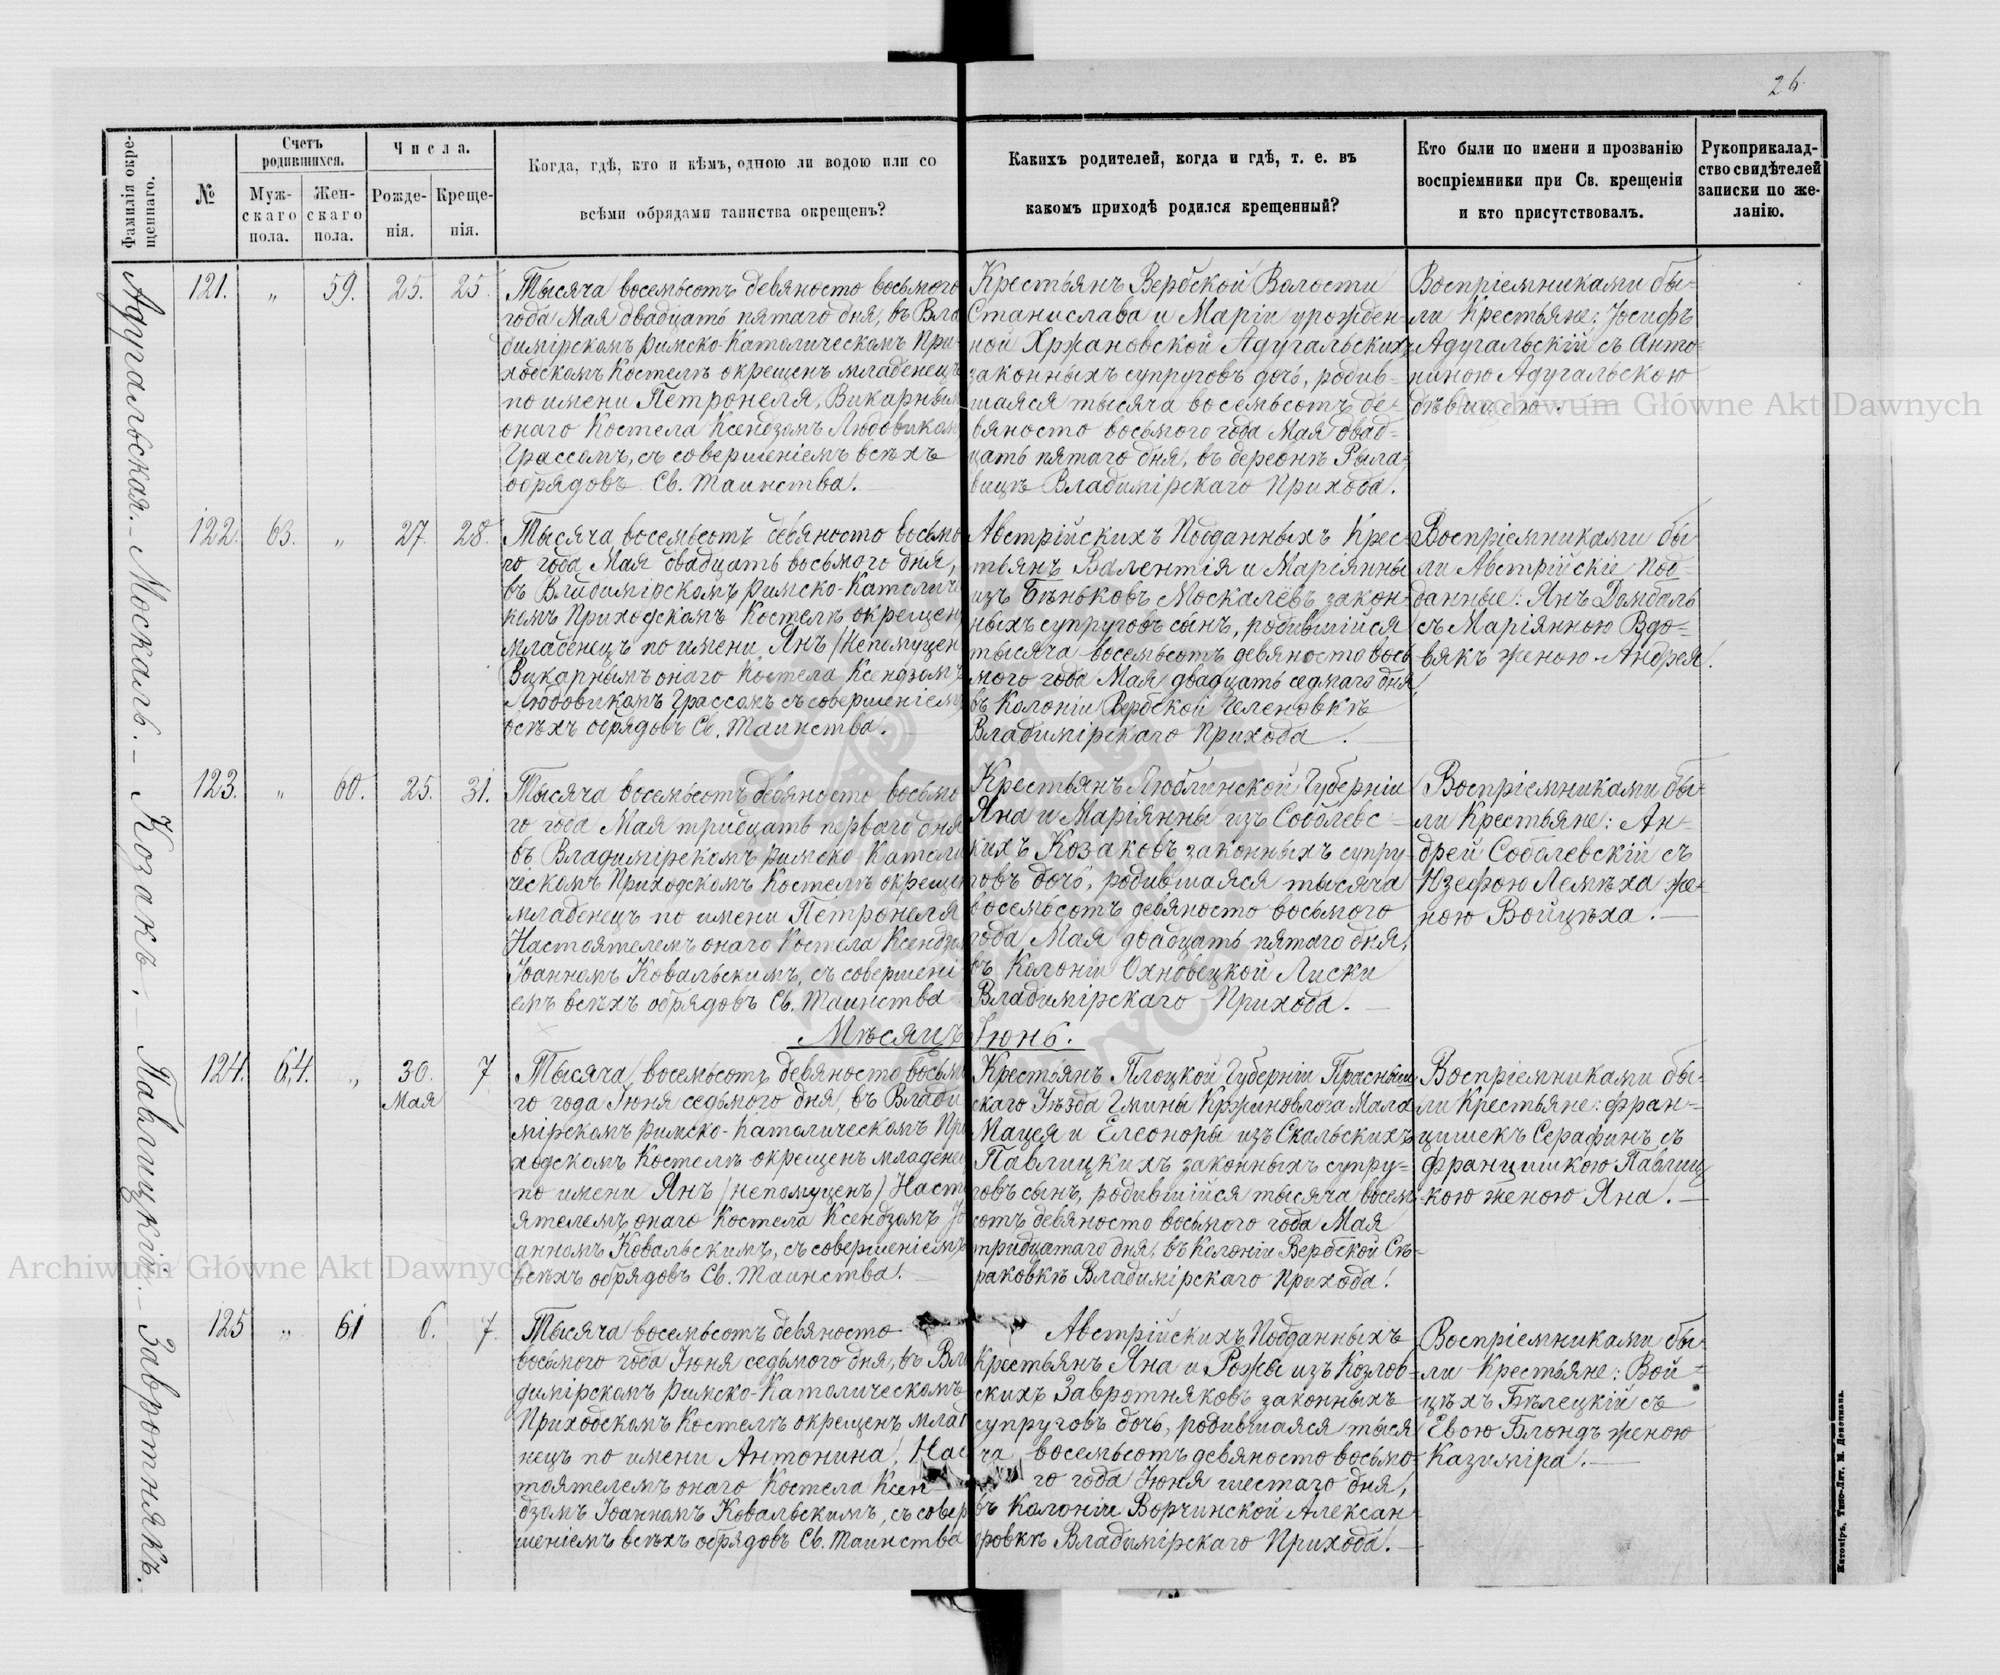 26
Фамилія окре-
щеннаго.
№
Счетъ
родившихся.
Муж-
скаго
пола.
Жен-
скаго
пола.
Числа.
Рожде-
нія.
Креще-
нія.
Когда, гдѣ, кто и кѣмъ, одною ли водою или со
всѣми обрядами таинства окрещенъ?
Какихъ родителей, когда и гдѣ, т. е. въ
какомъ приходѣ родился крещенный?
Кто были по имени и прозванію
воспріемники при Св. крещеніи
и кто присутствовалъ.
Рукоприкалад-
ство свидѣтелей
записки по же-
ланію.
Адугальская.- Москаль.- Козакъ.- Павлицкій.- Завротнякъ.
121. " 59. 25. 25.
Тысяча восемьсотъ девяносто восьмого
года Мая двадцать пятаго дня, въ Вла
димірскомъ Римско-Католическомъ При-
ходскомъ Костелѣ окрещенъ младенецъ
по имени Петронеля, Викарнымъ
онаго Костела Ксендзомъ Людовикомъ
Грассомъ, съ совершеніемъ всѣхъ
обрядовъ Св. Таинства.
Крестьянъ Вербской Волости
Станислава и Маріи урожден-
ной Хржановской Адугальскихъ
законныхъ супруговъ дочь, родив-
шаяся тысяча восемьсотъ де-
вяносто восьмого года Мая двад-
цать пятаго дня, въ деревнѣ Рыла-
вицѣ Владимірскаго Прихода.
Воспріемниками бы-
ли Крестьяне: Іосифъ
Адугальскій съ Анто-
ниною Адугальскою
дѣвицею.
122. 63. " 27. 28.
Тысяча восемьсотъ девяносто восьмо
го года Мая двадцать восьмого дня,
въ Владимірскомъ Римско-Католиче
комъ Приходскомъ Костелѣ окрещен
младенецъ по имени Янъ (Непомуцен
Викарнымъ онаго Костела Ксендзомъ
Людовикомъ Грассомъ съ совершеніемъ
всѣхъ обрядовъ Св. Таинства.
Австрійскихъ Подданныхъ Крес-
тьянъ Валентія и Маріянны
изъ Бѣньковъ Москалёвъ закон-
ныхъ супруговъ сынъ, родившійся
тысяча восемьсотъ девяносто вось
мого года Мая двадцать седмаго дня,
въ Колоніи Вербской Геленовкѣ
Владимірскаго Прихода.
Воспріемниками бы
ли Австрійскіе Под-
данные: Янъ Домбаль
съ Маріянною Вдо-
вякъ женою Андрея.
123. " 60. 25. 31.
Тысяча восемьсотъ девяносто восьмо
го года Мая тридцать перваго дня
въ Владимірскомъ Римско-Католи
ческомъ Приходскомъ Костелѣ окреще
младенецъ по имени Петронеля
Настоятелемъ онаго Костела Ксендзо
Іоанномъ Ковальскимъ, съ совершені
емъ всѣхъ обрядовъ Св. Таинства
Крестьянъ Люблинской Губерніи
Яна и Маріянны изъ Соболевс-
кихъ Козаковъ законныхъ супру
говъ дочь, родившаяся тысяча
восемьсотъ девяносто восьмого
года Мая двадцать пятаго дня,
въ Колоніи Охновецкой Лиски
Владимірскаго Прихода.
Воспріемниками бы-
ли Крестьяне: Ан-
дрей Соболевскій съ
Юзефою Лемѣха же-
ною Войцѣха.
Мѣсяцъ Іюнь.
124. 64. " 30. 7
Мая
Тысяча восемьсотъ девяносто восьмо
го года Іюня седьмого дня, въ Влади
мірскомъ Римско-Католическомъ При
ходскомъ Костелѣ окрещенъ младене
по имени Янъ (Непомуценъ) Наст
ятелемъ онаго Костела Ксендзомъ Іо
анномъ Ковальскимъ, съ совершеніемъ
всѣхъ обрядовъ Св. Таинства.
Крестьянъ Плоцкой Губерніи Прасныш
скаго Уѣзда Гмины Кржиновлога Мала
Мацея и Елеоноры изъ Скальскихъ
Павлицкихъ законныхъ супру-
говъ сынъ, родившійся тысяча восем
сотъ девяносто восьмого года Мая
тридцатаго дня, въ Колоніи Вербской Сѣ-
раковкѣ Владимірскаго Прихода.
Воспріемниками бы-
ли Крестьяне: Фран-
цишекъ Серафинъ съ
Францишкою Павлиц
кою женою Яна.
125 " 61 6. 7.
Тысяча восемьсотъ девяносто
восьмого года Іюня седьмого дня, въ Вла
димірскомъ Римско-Католическомъ
Приходскомъ Костелѣ окрещенъ млад
нецъ по имени Антонина, Нас
тоятелемъ онаго Костела Ксен
дзомъ Іоанномъ Ковальскимъ, съ совер
шеніемъ всѣхъ обрядовъ Св. Таинства
Австрійскихъ Подданныхъ
Крестьянъ Яна и Рожы изъ Козлов-
скихъ Завротняковъ законныхъ
супруговъ дочь, родившаяся тыся
ча восемьсотъ девяносто восьмо-
го года Іюня шестаго дня,
въ Колоніи Ворчинской Алексан
дровкѣ Владимірскаго Прихода.
Воспріемниками бы-
ли Крестьяне: Вой-
цѣхъ Бѣлецкій съ
Евою Блондъ женою
Казиміра.
Житоміръ, Типо-Лит. М. Дененмана.
Archiwum Główne Akt Dawnych
Archiwum Główne Akt Dawnych